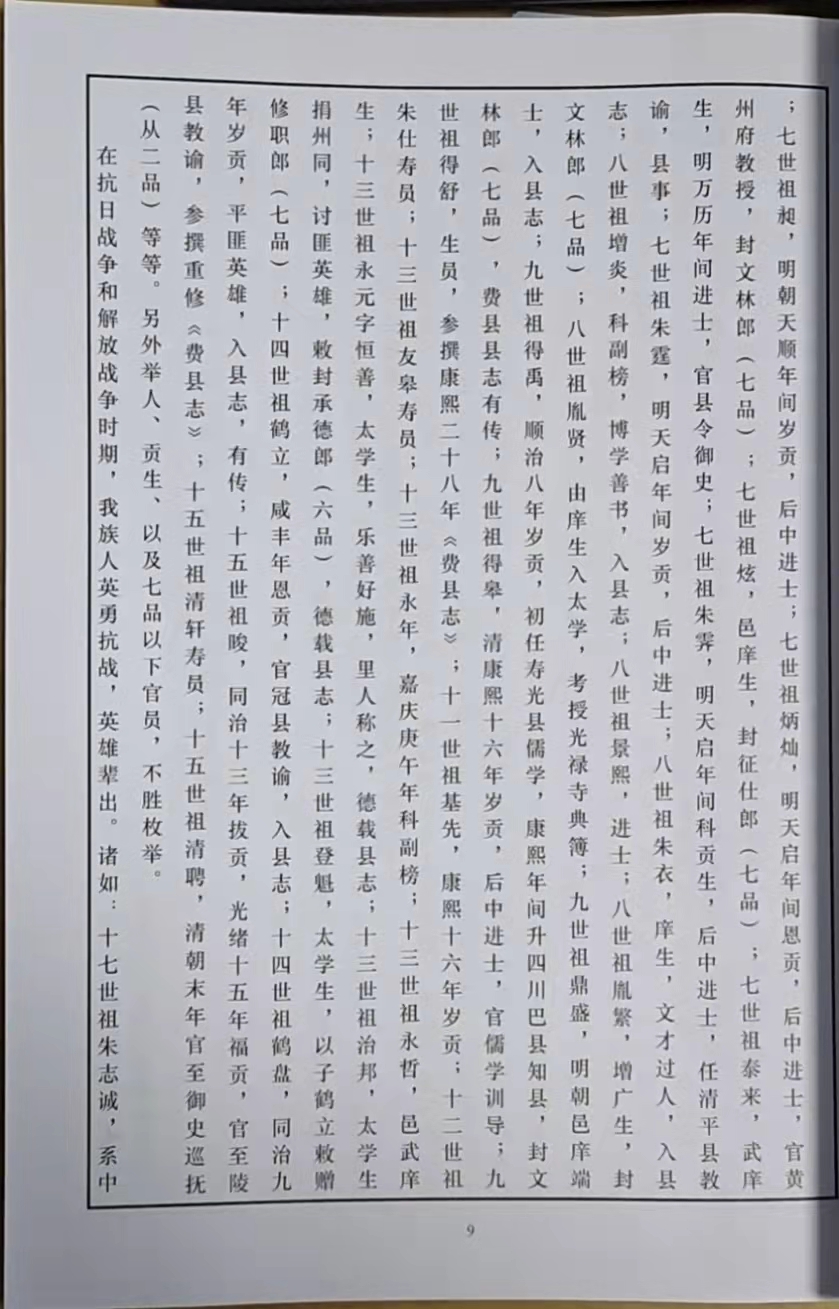 ；七世祖昶，明朝天顺年间岁贡，后中进士；七世祖炳灿，明天启年间恩贡，后中进士，官黄
州府教授，封文林郎（七品）；七世祖炫，邑庠生，封征仕郎（七品）；七世祖泰来，武庠
生，明万历年间进士，官县令御史；七世祖朱霁，明天启年间科贡生，后中进士，任清平县教
谕，县事；七世祖朱霆，明天启年间岁贡，后中进士；八世祖朱衣，庠生，文才过人，入县
志；八世祖增炎，科副榜，博学善书，入县志；八世祖景熙，进士；八世祖胤繁，增广生，封
文林郎（七品）；八世祖胤贤，由庠生入太学，考授光禄寺典簿；九世祖鼎盛，明朝邑庠端
士，入县志；九世祖得禹，顺治八年岁贡，初任寿光县儒学，康熙年间升四川巴县知县，封文
林郎（七品），费县县志有传；九世祖得皋，清康熙十六年岁贡，后中进士，官儒学训导；九
世祖得舒，生员，参撰康熙二十八年《费县志》；十一世祖基先，康熙十六年岁贡；十二世祖
朱仕寿员；十三世祖友皋寿员；十三世祖永年，嘉庆庚午年科副榜；十三世祖永哲，邑武庠
生；十三世祖永元字恒善，太学生，乐善好施，里人称之，德载县志；十三世祖治邦，太学生
捐州同，讨匪英雄，敕封承德郎（六品），德载县志；十三世祖登魁，太学生，以子鹤立敕赠
修职郎（七品）；十四世祖鹤立，咸丰年恩贡，官冠县教谕，入县志；十四世祖鹤盘，同治九
年岁贡，平匪英雄，入县志，有传；十五世祖晙，同治十三年拔贡，光绪十五年福贡，官至陵
县教谕，参撰重修《费县志》；十五世祖清轩寿员；十五世祖清聘，清朝末年官至御史巡抚
（从二品）等等。另外举人、贡生、以及七品以下官员，不胜枚举。
在抗日战争和解放战争时期，我族人英勇抗战，英雄辈出。诸如：十七世祖朱志诚，系中
9